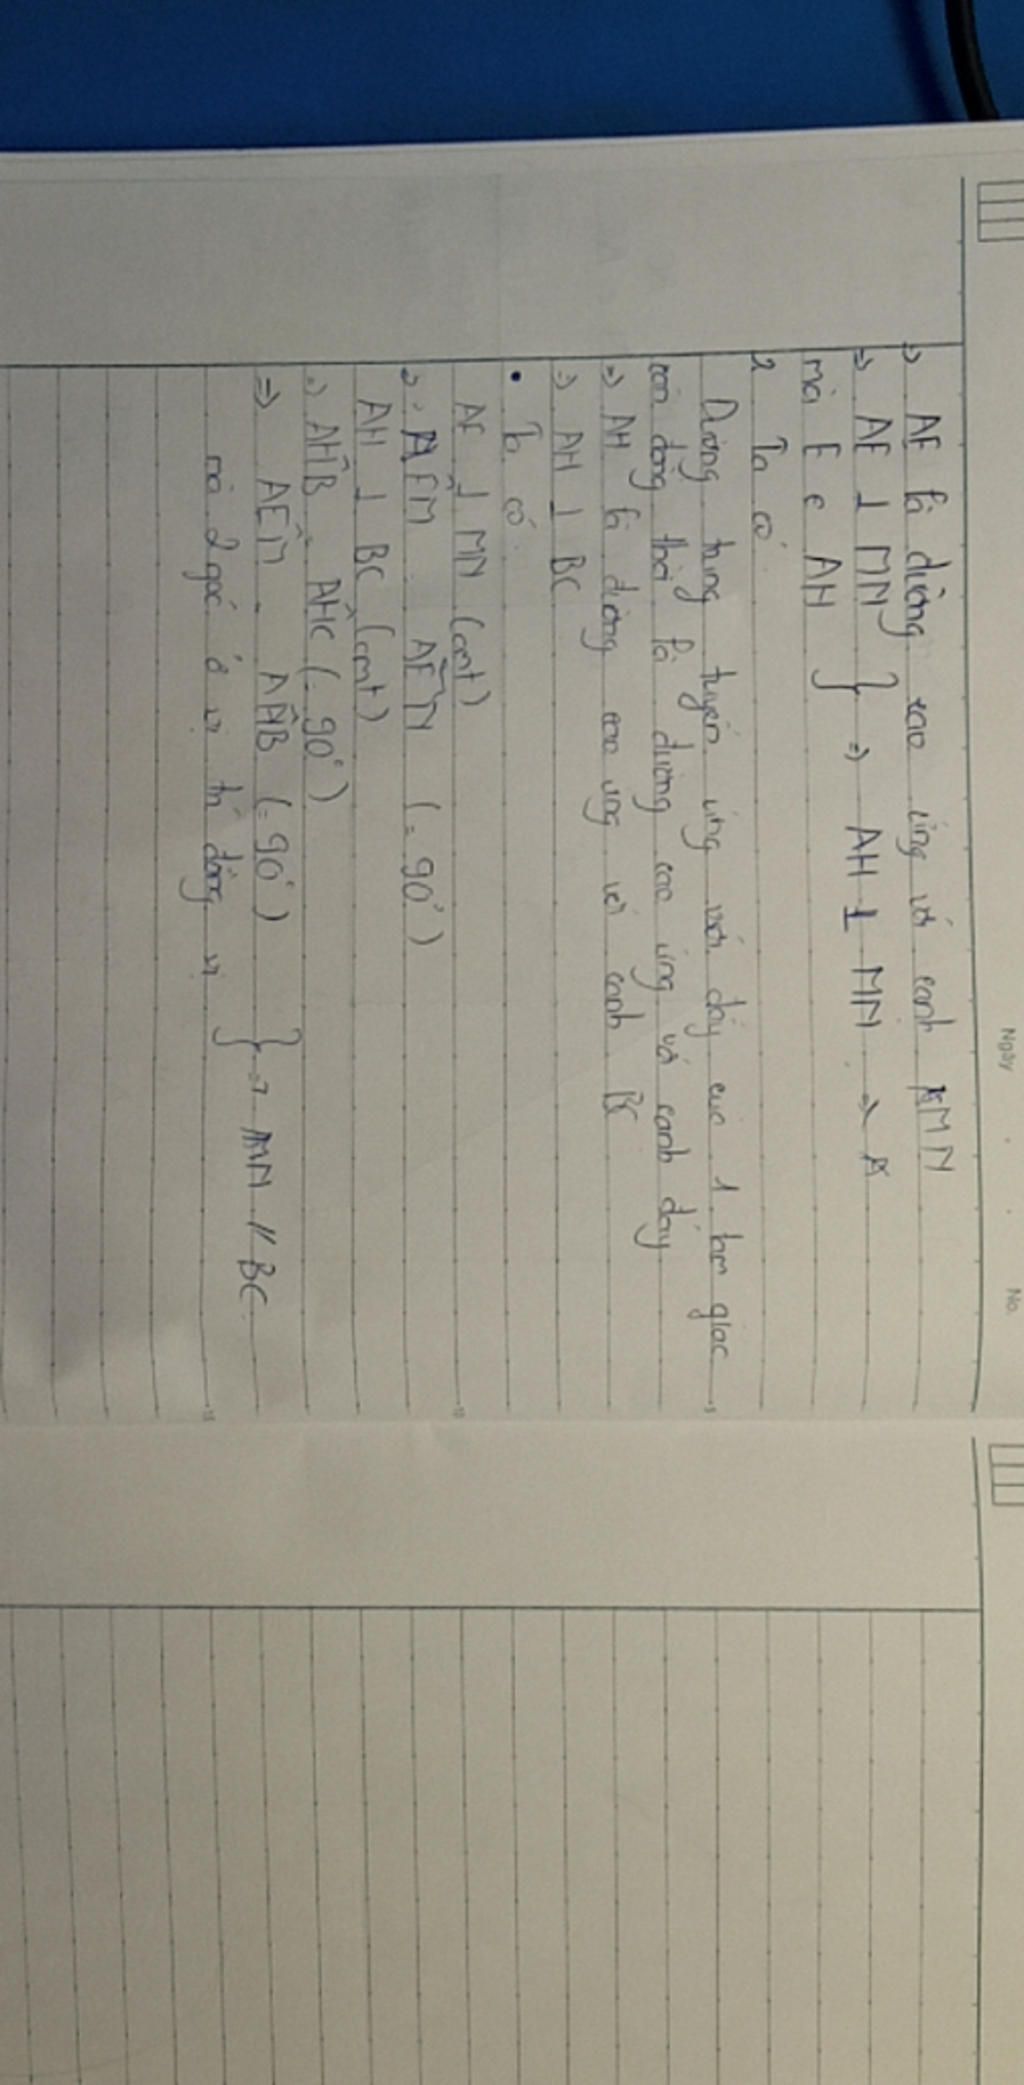 Ngày No.
=> AE là đường cao ứng với cạnh MN
=> AE ⊥ MN } => AH ⊥ MN =>
mà E ∈ AH
2 Ta có
Đường trung tuyến ứng với đáy của 1 tam giác
cân đồng thời là đường cao ứng với cạnh đáy
=> AH là đường cao ứng với cạnh BC
=> AH ⊥ BC
• Ta có
AE ⊥ MN (cmt)
=> AÊM = AÊN (= 90°)
AH ⊥ BC (cmt)
=> AĤB = AĤC (= 90°)
=> AÊM = AĤB (= 90°) } => MN // BC
mà 2 góc ở vị trí đồng vị